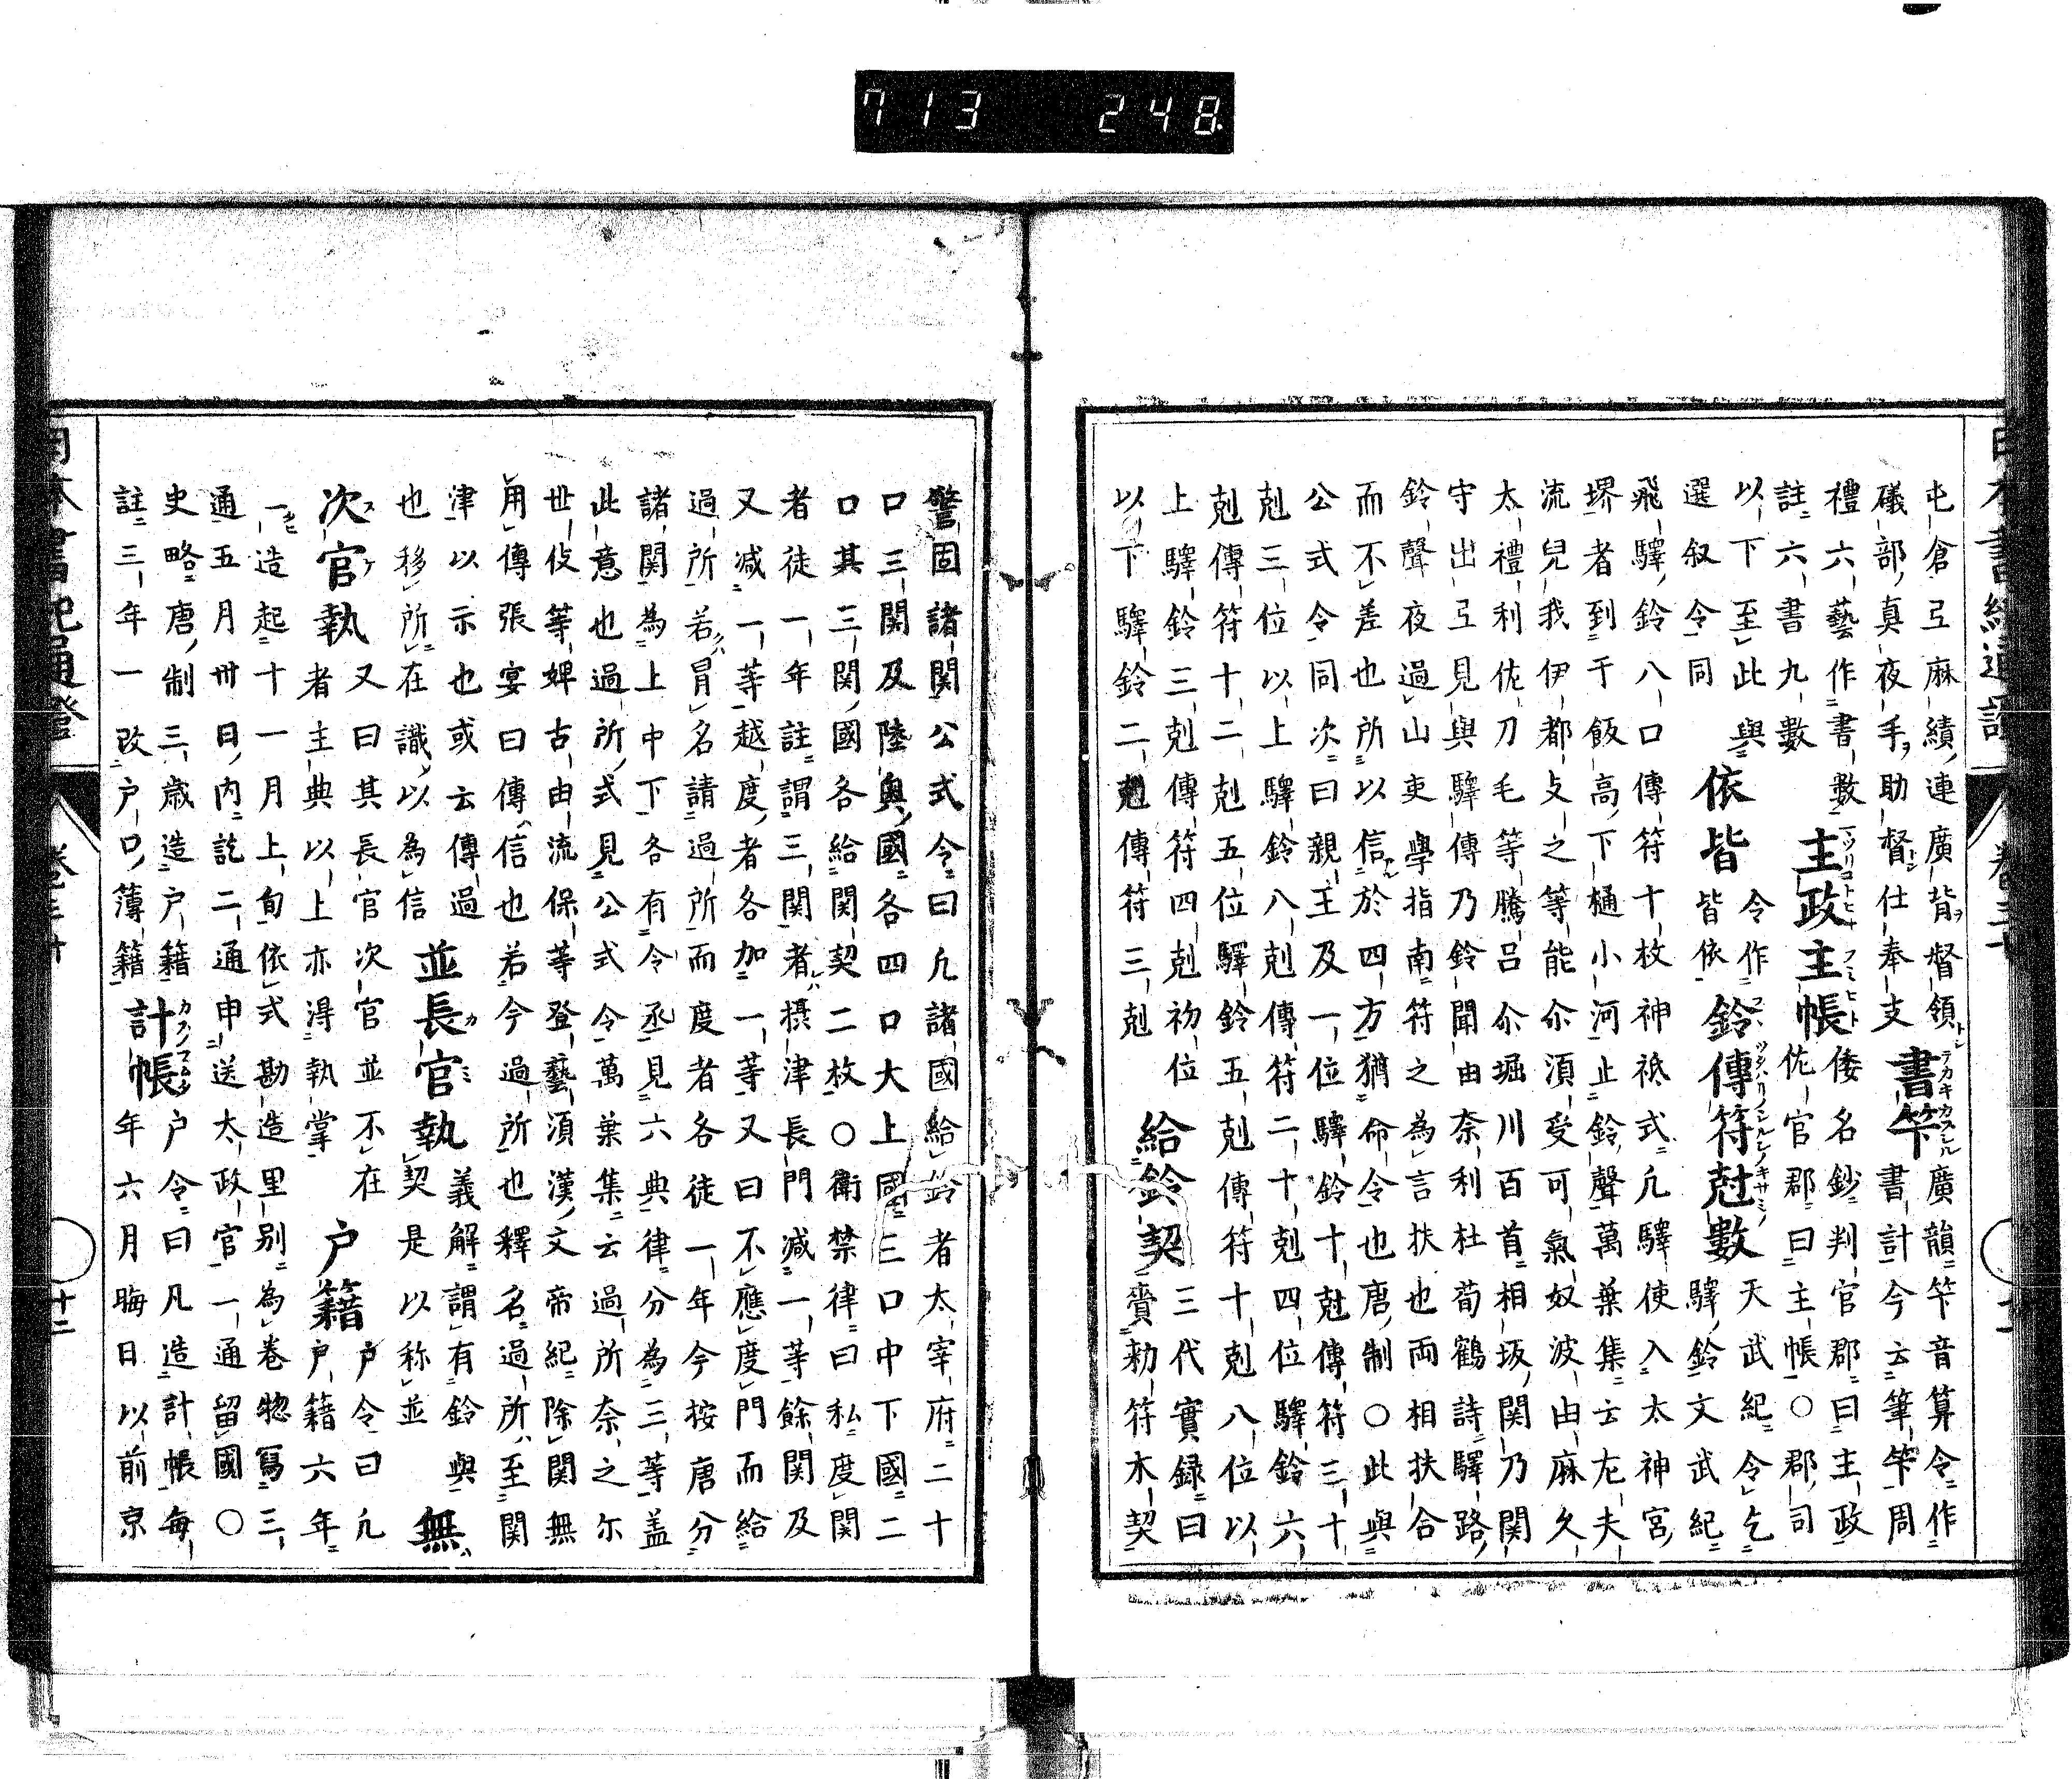 713 248
屯倉弖麻績連廣背督領
礒部真夜手助督仕奉支 書筭 廣韻筭音算令作
禮六藝作書數 書計今云筆筭周
註六書九數 主政主帳 倭名鈔判官郡曰主政
佐官郡曰主帳〇郡司
以下至此與
選叙令同 依皆 令作
皆依 鈴傳符尅數 天武紀令乞
驛鈴文武紀
飛驛鈴八口傳符十枚神祇式凡驛使入太神宮
堺者到于飯高下樋小河止鈴聲萬葉集云左夫
流兒我伊都攴之等能尒湏受可氣奴波由麻久
太禮利佐刀毛等騰呂尒堀川百首相坂関乃関
守出弖見與驛傳乃鈴聞由奈利杜荀鶴詩驛路
鈴聲夜過山吏學指南符之為言扶也両相扶合
而不差也所以信於四方猶命令也唐制〇此與
公式令同次曰親王及一位驛鈴十尅傳符三十
尅三位以上驛鈴八尅傳符二十尅四位驛鈴六
尅傳符十二尅五位驛鈴五尅傳符十尅八位以
上驛鈴三尅傳符四尅初位
以下驛鈴二尅傳符三尅 給鈴契 三代實録曰
賫勅符木契
警固諸関公式令曰凡諸國給鈴者太宰府二十
口三関及陸奥國各四口大上國三口中下國二
口其三関國各給関契二枚〇衛禁律曰私度関
者徒一年註謂三関者摂津長門減一等餘関及
又減一等越度者各加一等又曰不應度門而給
過所若冒名請過所而度者各徒一年今按唐分
諸関為上中下各有令丞見六典律分為三等盖
此意也過所式見公式令萬葉集云過所奈之尓
世伎等婢古由流保等登藝湏漢文帝紀除関無
用傳張宴曰傳信也若今過所也釋名過所至関
津以示也或云傳過
也移所在識以為信 並長官執 義解謂有鈴與
契是以称並 無
次官執 又曰其長官次官並不在
者主典以上亦得執掌 户籍 户令曰凡
户籍六年
一造起十一月上旬依式勘造里別為巻惣寫三
通五月卅日内訖二通申送太政官一通留國〇
史略唐制三歳造户籍 户令曰凡造計帳毎
註三年一改户口簿籍 計帳 年六月晦日以前京
日本書紀通證 卷三十 十二